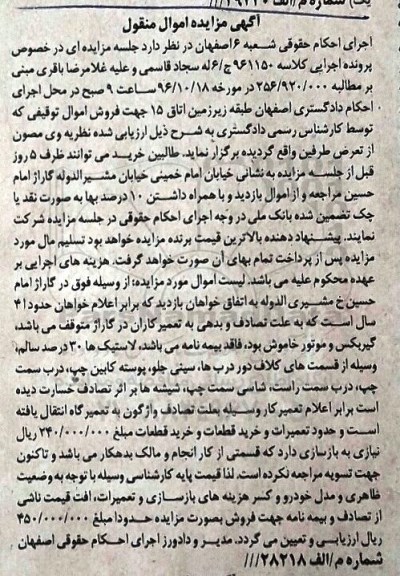 آگهی مزایده اموال منقول
اجرای احکام حقوقی شعبه ۶ اصفهان در نظر دارد جلسه مزایده ای در خصوص
پرونده اجرایی کلاسه ۹۶۱۱۵۰ج/۶ له سجاد قاسمی و علیه غلامرضا باقری مبنی
بر مطالبه ۲۵۶/۹۲۰/۰۰۰ در مورخه ۹۶/۱۰/۱۸ ساعت ۹ صبح در محل اجرای
احکام دادگستری اصفهان طبقه زیرزمین اتاق ۱۵ جهت فروش اموال توقیفی که
توسط کارشناس رسمی دادگستری به شرح ذیل ارزیابی شده نظریه وی مصون
از تعرض طرفین واقع گردیده برگزار نماید. طالبین خرید می توانند ظرف ۵ روز
قبل از جلسه مزایده به نشانی خیابان امام خمینی خیابان مشیرالدوله گاراژ امام
حسین مراجعه و از اموال بازدید و با همراه داشتن ۱۰ درصد بها به صورت نقد یا
چک تضمین شده بانک ملی در وجه اجرای احکام حقوقی در جلسه مزایده شرکت
نمایند. پیشنهاد دهنده بالاترین قیمت برنده مزایده خواهد بود تسلیم مال مورد
مزایده پس از پرداخت تمام بهای آن صورت خواهد گرفت. هزینه های اجرایی بر
عهده محکوم علیه می باشد. لیست اموال مورد مزایده: از وسیله فوق در گاراژ امام
حسین خ مشیری الدوله به اتفاق خواهان بازدید که برابر اعلام خواهان حدود ۴۱
سال است که به علت تصادف و بدهی به تعمیرکاران در گاراژ متوقف می باشد،
گیربکس و موتور خاموش بود، فاقد بیمه نامه می باشد، لاستیک ها ۳۰ درصد سالم،
وسیله از قسمت های کلاف دور درب ها، سینی جلو، پوسته کابین چپ، درب سمت
چپ، درب سمت راست، شاسی سمت چپ، شیشه ها بر اثر تصادف خسارت دیده
است برابر اعلام تعمیرکار وسیله بعلت تصادف واژگون به تعمیرگاه انتقال یافته
است و حدود تعمیرات و خرید قطعات و خرید قطعات مبلغ ۲۴۰/۰۰۰/۰۰۰ ریال
نیازی به بازسازی دارد که قسمتی از کار انجام و مالک بدهکار می باشد و تاکنون
جهت تسویه مراجعه نکرده است. لذا قیمت پایه کارشناسی وسیله با توجه به وضعیت
ظاهری و مدل خودرو و کسر هزینه های بازسازی و تعمیرات، افت قیمت ناشی
از تصادف و بیمه نامه جهت فروش بصورت مزایده حدودا مبلغ ۴۵۰/۰۰۰/۰۰۰
ریال ارزیابی و تعیین می گردد. مدیر و دادورز اجرای احکام حقوقی اصفهان
شماره م/الف ۲۸۲۱۸///